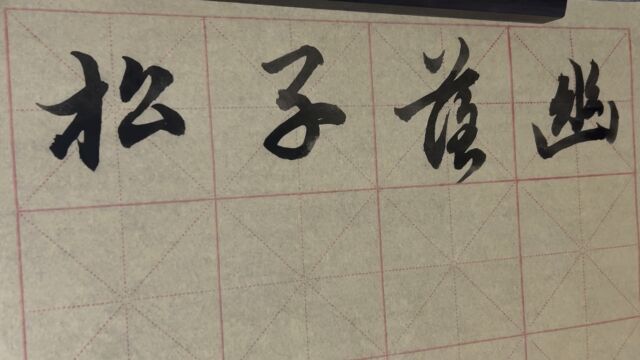 松子落幽